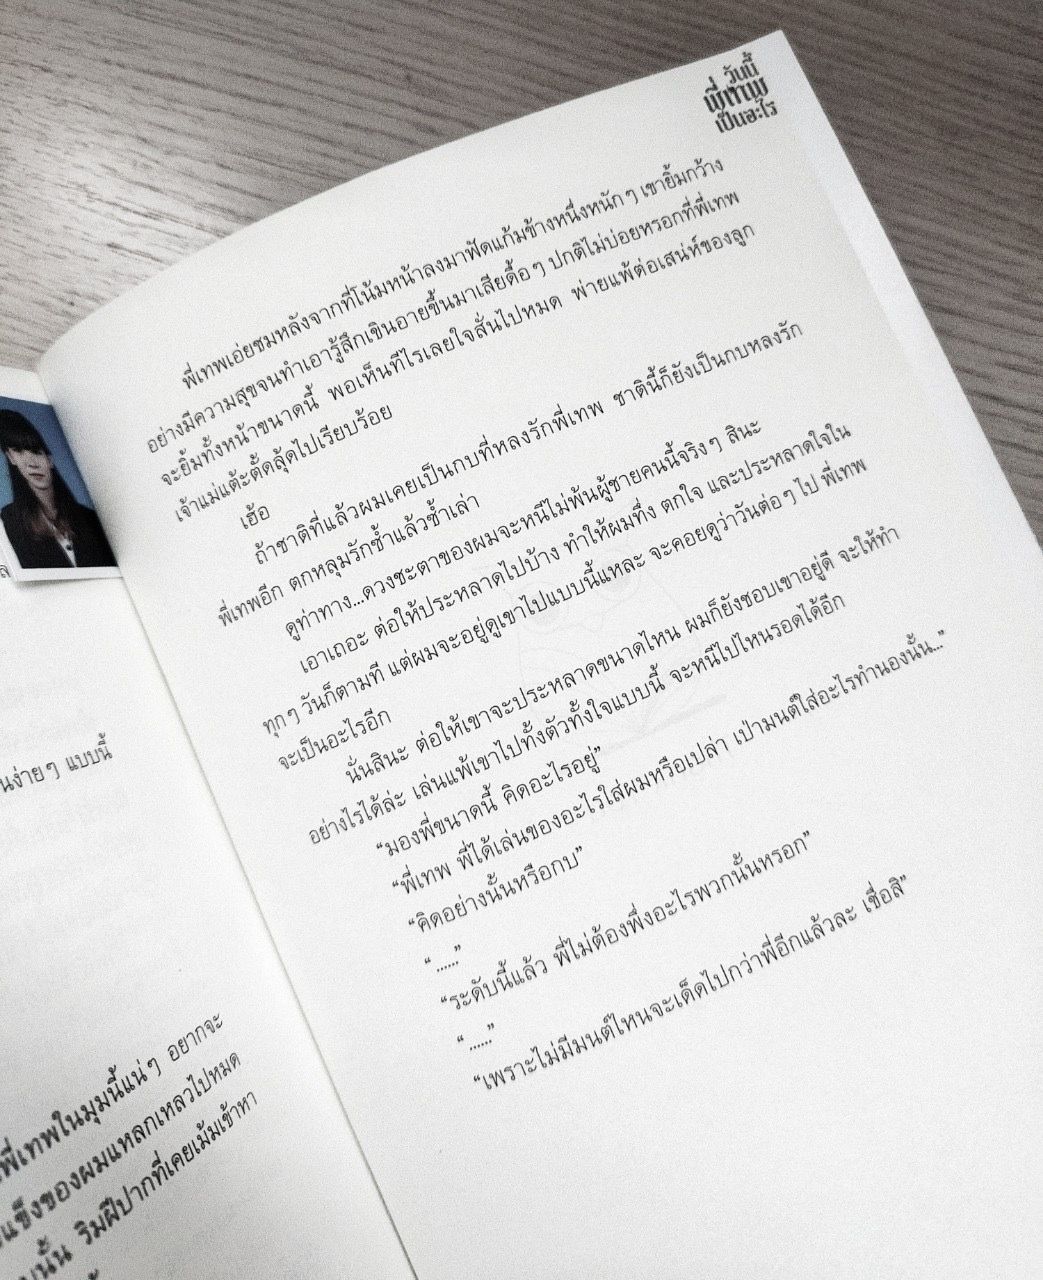 ล
นง่ายๆ แบบนี้
พี่เทพในมุมนี้แน่ๆ อยากจะ
แข็งของผมแหลกเหลวไปหมด
นั้น ริมฝีปากที่เคยเม้มเข้าหา
วันนี้
พี่เทพ
เป็นอะไร
พี่เทพเอ่ยชมหลังจากที่โน้มหน้าลงมาฟัดแก้มข้างหนึ่งหนักๆ เขายิ้มกว้าง
อย่างมีความสุขจนทำเอารู้สึกเขินอายขึ้นมาเสียดื้อๆ ปกติไม่บ่อยหรอกที่พี่เทพ
จะยิ้มทั้งหน้าขนาดนี้ พอเห็นทีไรเลยใจสั่นไปหมด พ่ายแพ้ต่อเสน่ห์ของลูก
เจ้าแม่แต้ะตั้ดลุ้ดไปเรียบร้อย
เฮ้อ
ถ้าชาติที่แล้วผมเคยเป็นกบที่หลงรักพี่เทพ ชาตินี้ก็ยังเป็นกบหลงรัก
พี่เทพอีก ตกหลุมรักซ้ำแล้วซ้ำเล่า
ดูท่าทาง...ดวงชะตาของผมจะหนีไม่พ้นผู้ชายคนนี้จริงๆ สินะ
เอาเถอะ ต่อให้ประหลาดไปบ้าง ทำให้ผมทึ่ง ตกใจ และประหลาดใจใน
ทุกๆ วันก็ตามที แต่ผมจะอยู่ดูเขาไปแบบนี้แหละ จะคอยดูว่าวันต่อๆ ไป พี่เทพ
จะเป็นอะไรอีก
นั่นสินะ ต่อให้เขาจะประหลาดขนาดไหน ผมก็ยังชอบเขาอยู่ดี จะให้ทำ
อย่างไรได้ล่ะ เล่นแพ้เขาไปทั้งตัวทั้งใจแบบนี้ จะหนีไปไหนรอดได้อีก
“มองพี่ขนาดนี้ คิดอะไรอยู่”
“พี่เทพ พี่ได้เล่นของอะไรใส่ผมหรือเปล่า เป่ามนต์ใส่อะไรทำนองนั้น...”
“คิดอย่างนั้นหรือกบ”
“......”
“ระดับนี้แล้ว พี่ไม่ต้องพึ่งอะไรพวกนั้นหรอก”
“......”
“เพราะไม่มีมนต์ไหนจะเด็ดไปกว่าพี่อีกแล้วละ เชื่อสิ”